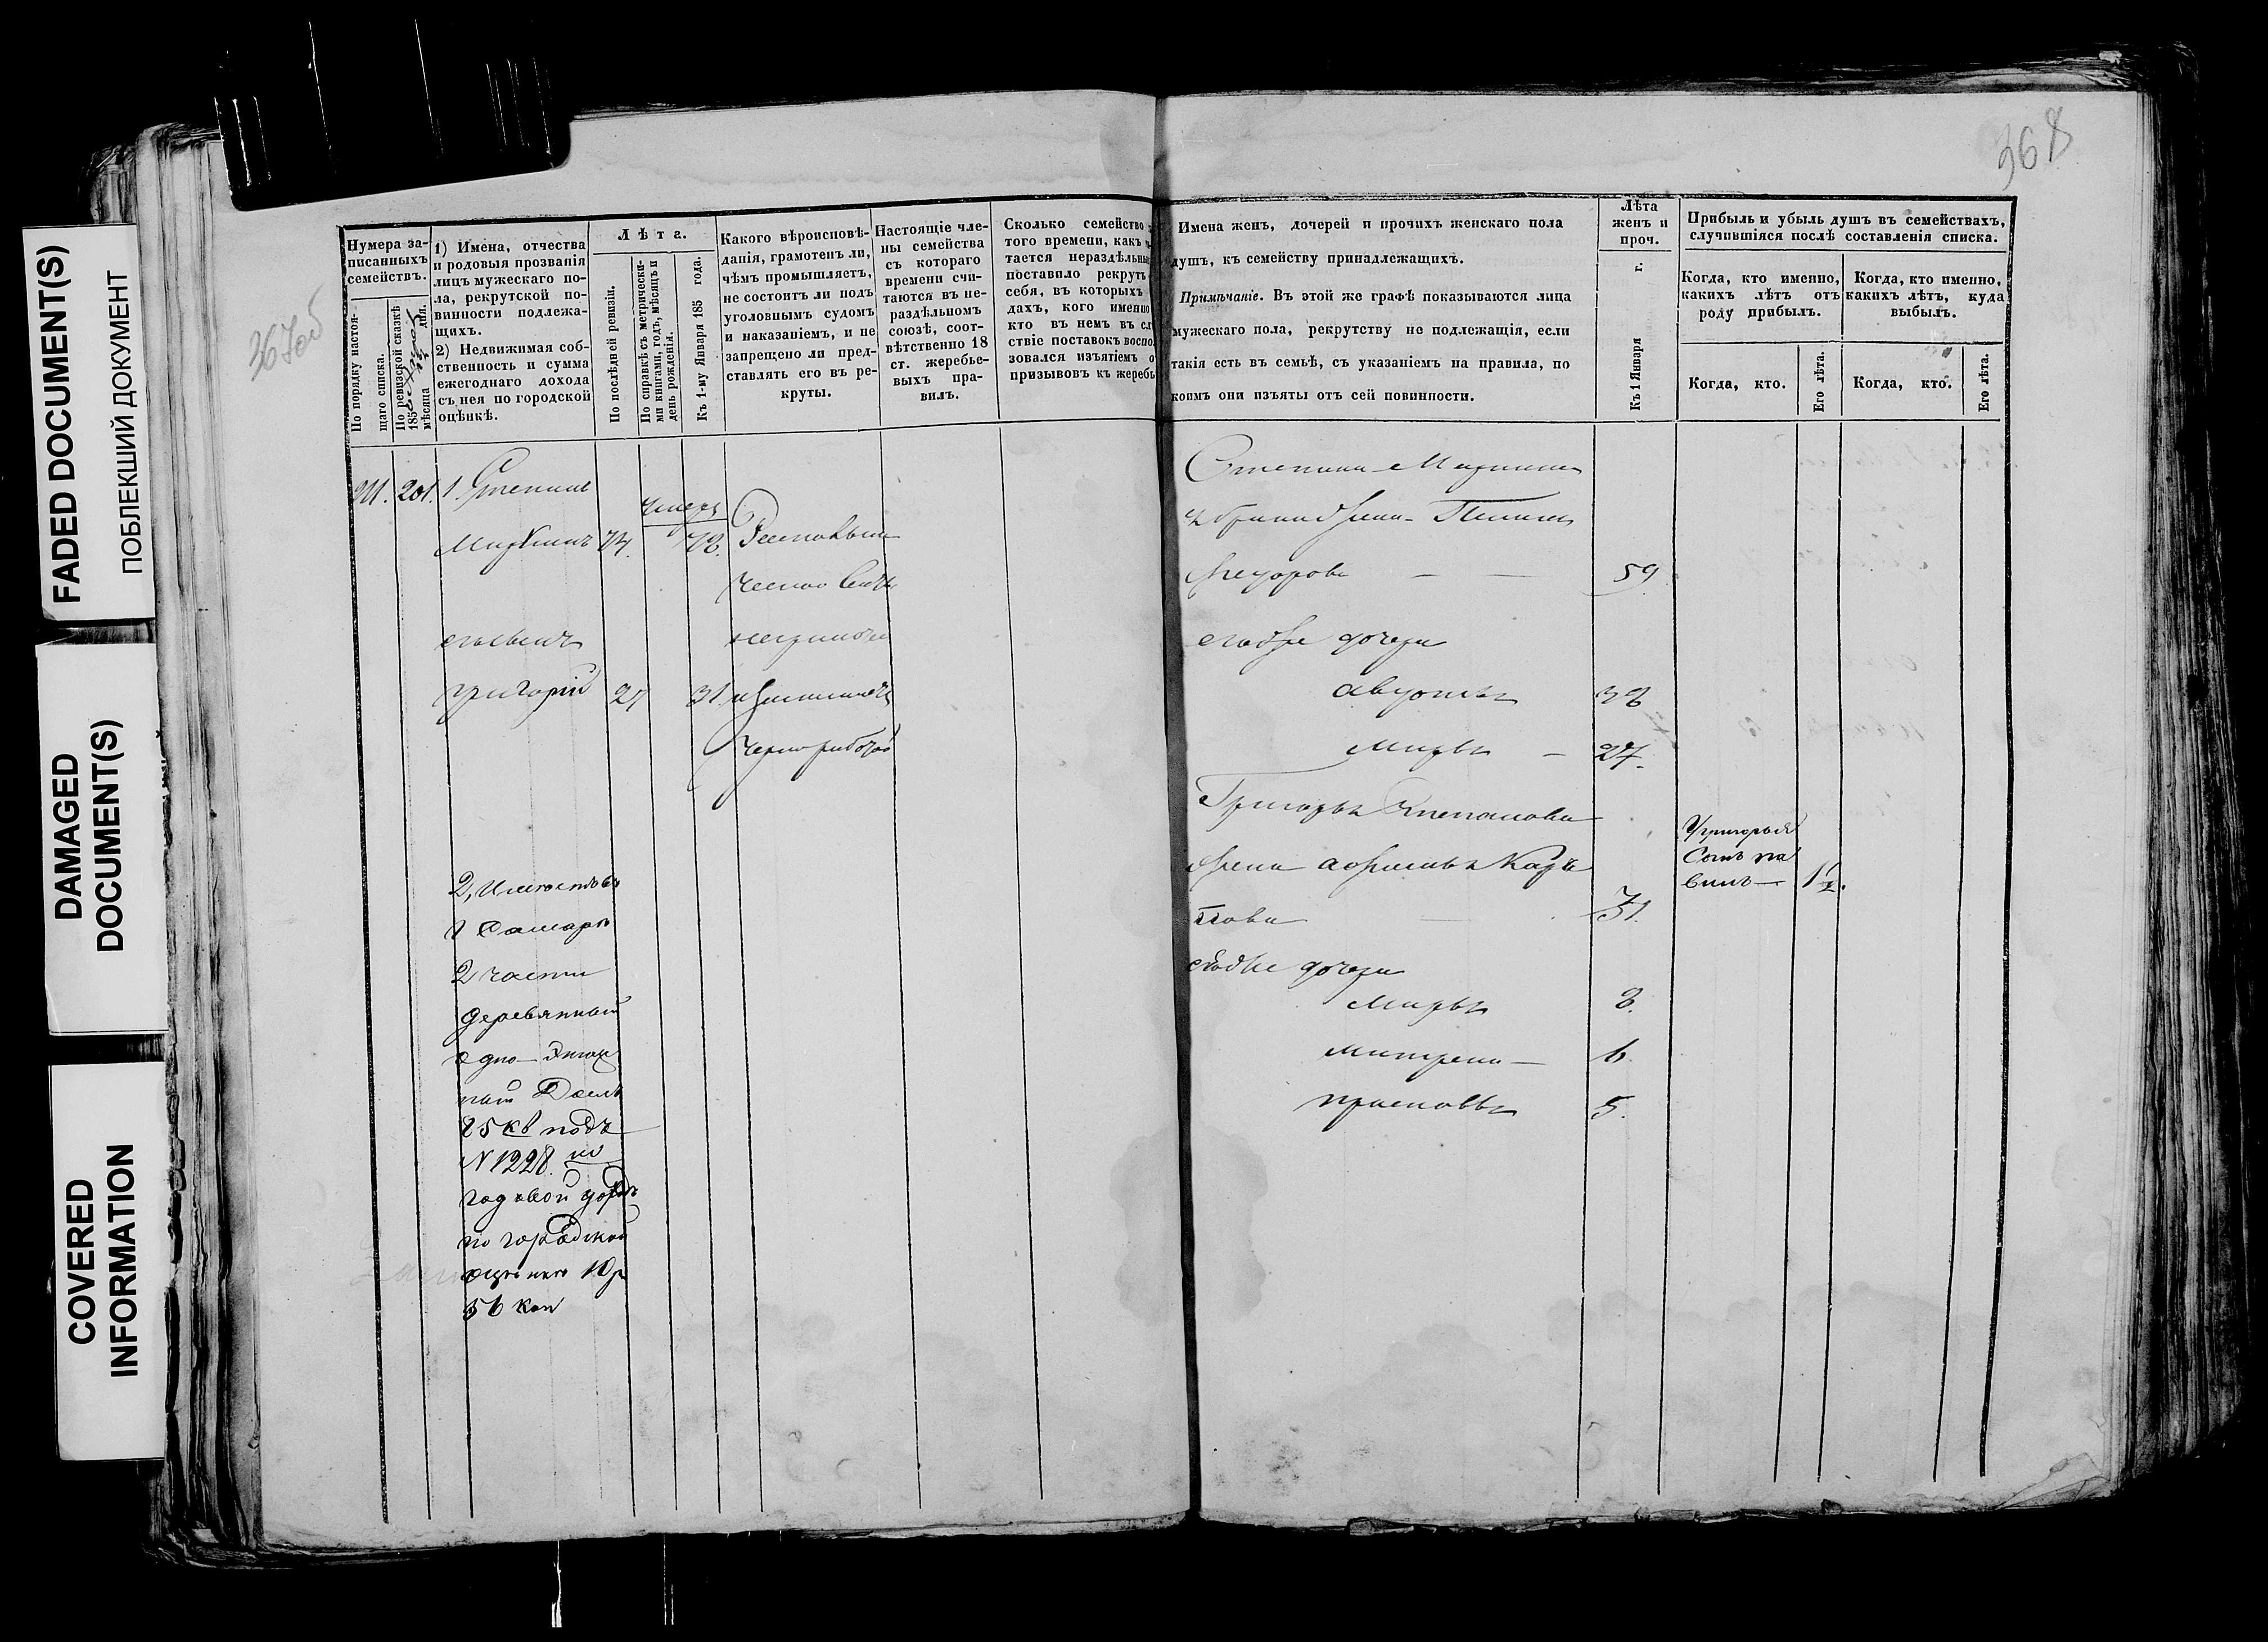 FADED DOCUMENT(S)
ПОБЛЕКШИЙ ДОКУМЕНТ
DAMAGED
DOCUMENT(S)
COVERED
INFORMATION
367об
368
Нумера за-
писанныхъ
семействъ.
По порядку настоя-
щаго списка.
По ревизской сказкѣ
185
мѣсяца дня.
1) Имена, отчества
и родовыя прозванія
лицъ мужескаго по-
ла, рекрутской по-
винности подлежа-
щихъ.
2) Недвижимая соб-
ственность и сумма
ежегоднаго дохода
съ нея по городской
оцѣнкѣ.
Лѣта.
По послѣдней ревизіи.
По справкѣ съ метрически-
ми книгами, годъ, мѣсяцъ и
день рожденія.
Къ 1-му Января 185 года.
Какого вѣроисповѣ-
данія, грамотенъ ли,
чѣмъ промышляетъ,
не состоитъ ли подъ
уголовнымъ судомъ
и наказаніемъ, и не
запрещено ли пред-
ставлять его въ ре-
круты.
Настоящіе чле-
ны семейства
съ котораго
времени счи-
таются въ не-
раздѣльномъ
союзѣ, соот-
вѣтственно 18
ст. жеребье-
выхъ пра-
вилъ.
Сколько семейство
того времени, какъ
тается нераздѣльны
поставило рекрутъ
себя, въ которыхъ
дахъ, кого именно
кто въ немъ въ сл
ствіе поставокъ воспо
зовался изъятіемъ о
призывовъ къ жеребь
Имена женъ, дочерей и прочихъ женскаго пола
душъ, къ семейству принадлежащихъ.
Примѣчаніе. Въ этой же графѣ показываются лица
мужескаго пола, рекрутству не подлежащія, если
такія есть въ семьѣ, съ указаніемъ на правила, по
коимъ они изъяты отъ сей повинности.
Лѣта
женъ и
проч.
Къ 1 Января г.
Прибыль и убыль душъ въ семействахъ,
случившіяся послѣ составленія списка.
Когда, кто именно,
какихъ лѣтъ отъ
роду прибылъ.
Когда, кто именно,
какихъ лѣтъ, куда
выбылъ.
Когда, кто.
Его лѣта.
Когда, кто.
Его лѣта.
201. 1. Степанъ
74.
Григорій 27 31.
чернорабочій
2, Имеютъ
Самаре
2 части
деревянный
одно-этаж
ный Домъ
25 кв подъ
N 1228. но
годовой доходъ
по городской
оценке 10 р
56 коп
59
его же дочери
Авдотья
Марья — 27.
Григорья Степанова
жена
31.
его же дочери
Марья 8.
Матрена — 6.
Прасковья 5.
У Григорья
Сынъ па
велъ — 1 1/2.